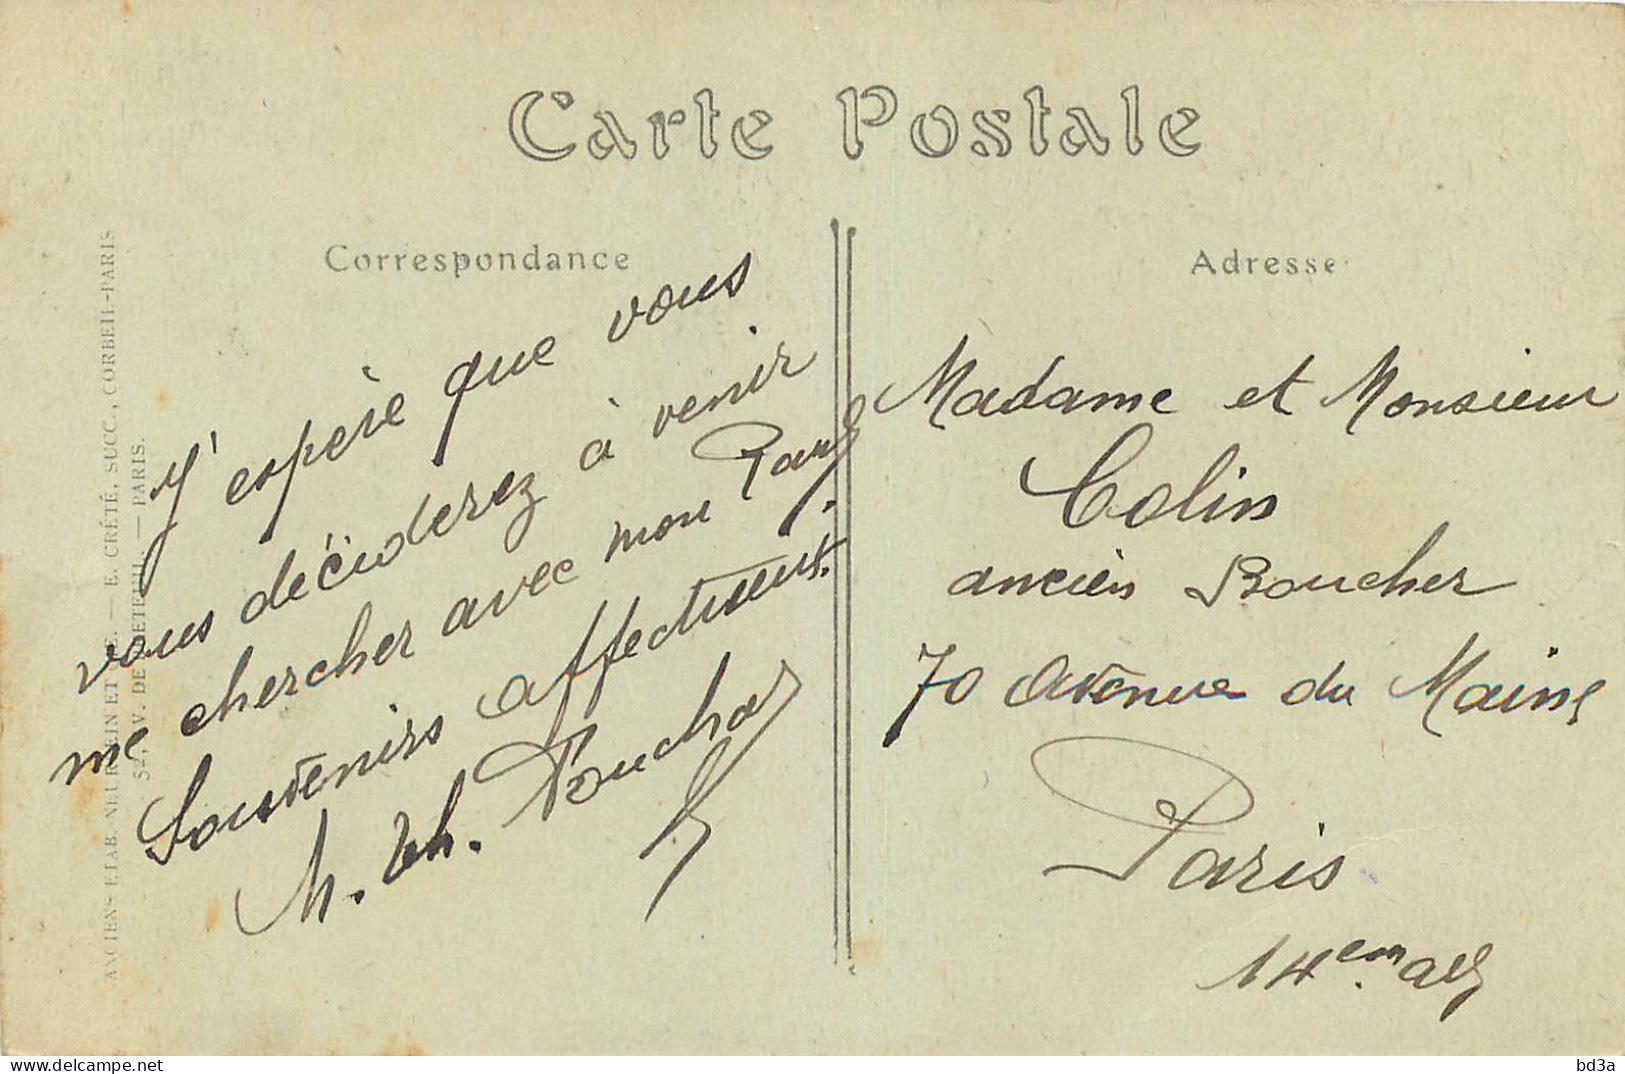 Carte Postale
Correspondance
J'espère que vous
vous déciderez à venir
me chercher avec mon Paul.
Souvenirs affectueux.
M. Th. Pouchar
Adresse
Madame et Monsieur
Colin
ancien Boucher
70 Avenue du Maine
Paris
14em
ANCIENS ETAB. NEURDEIN ET CIE. — E. CRÉTÉ, SUCC., CORBEIL-PARIS
52, AV. DE BRETEUIL. — PARIS.
www.delcampe.net
bd3a